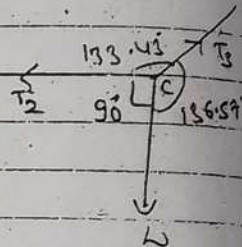 133.43°
T3
T2
C
90°
136.57°
L